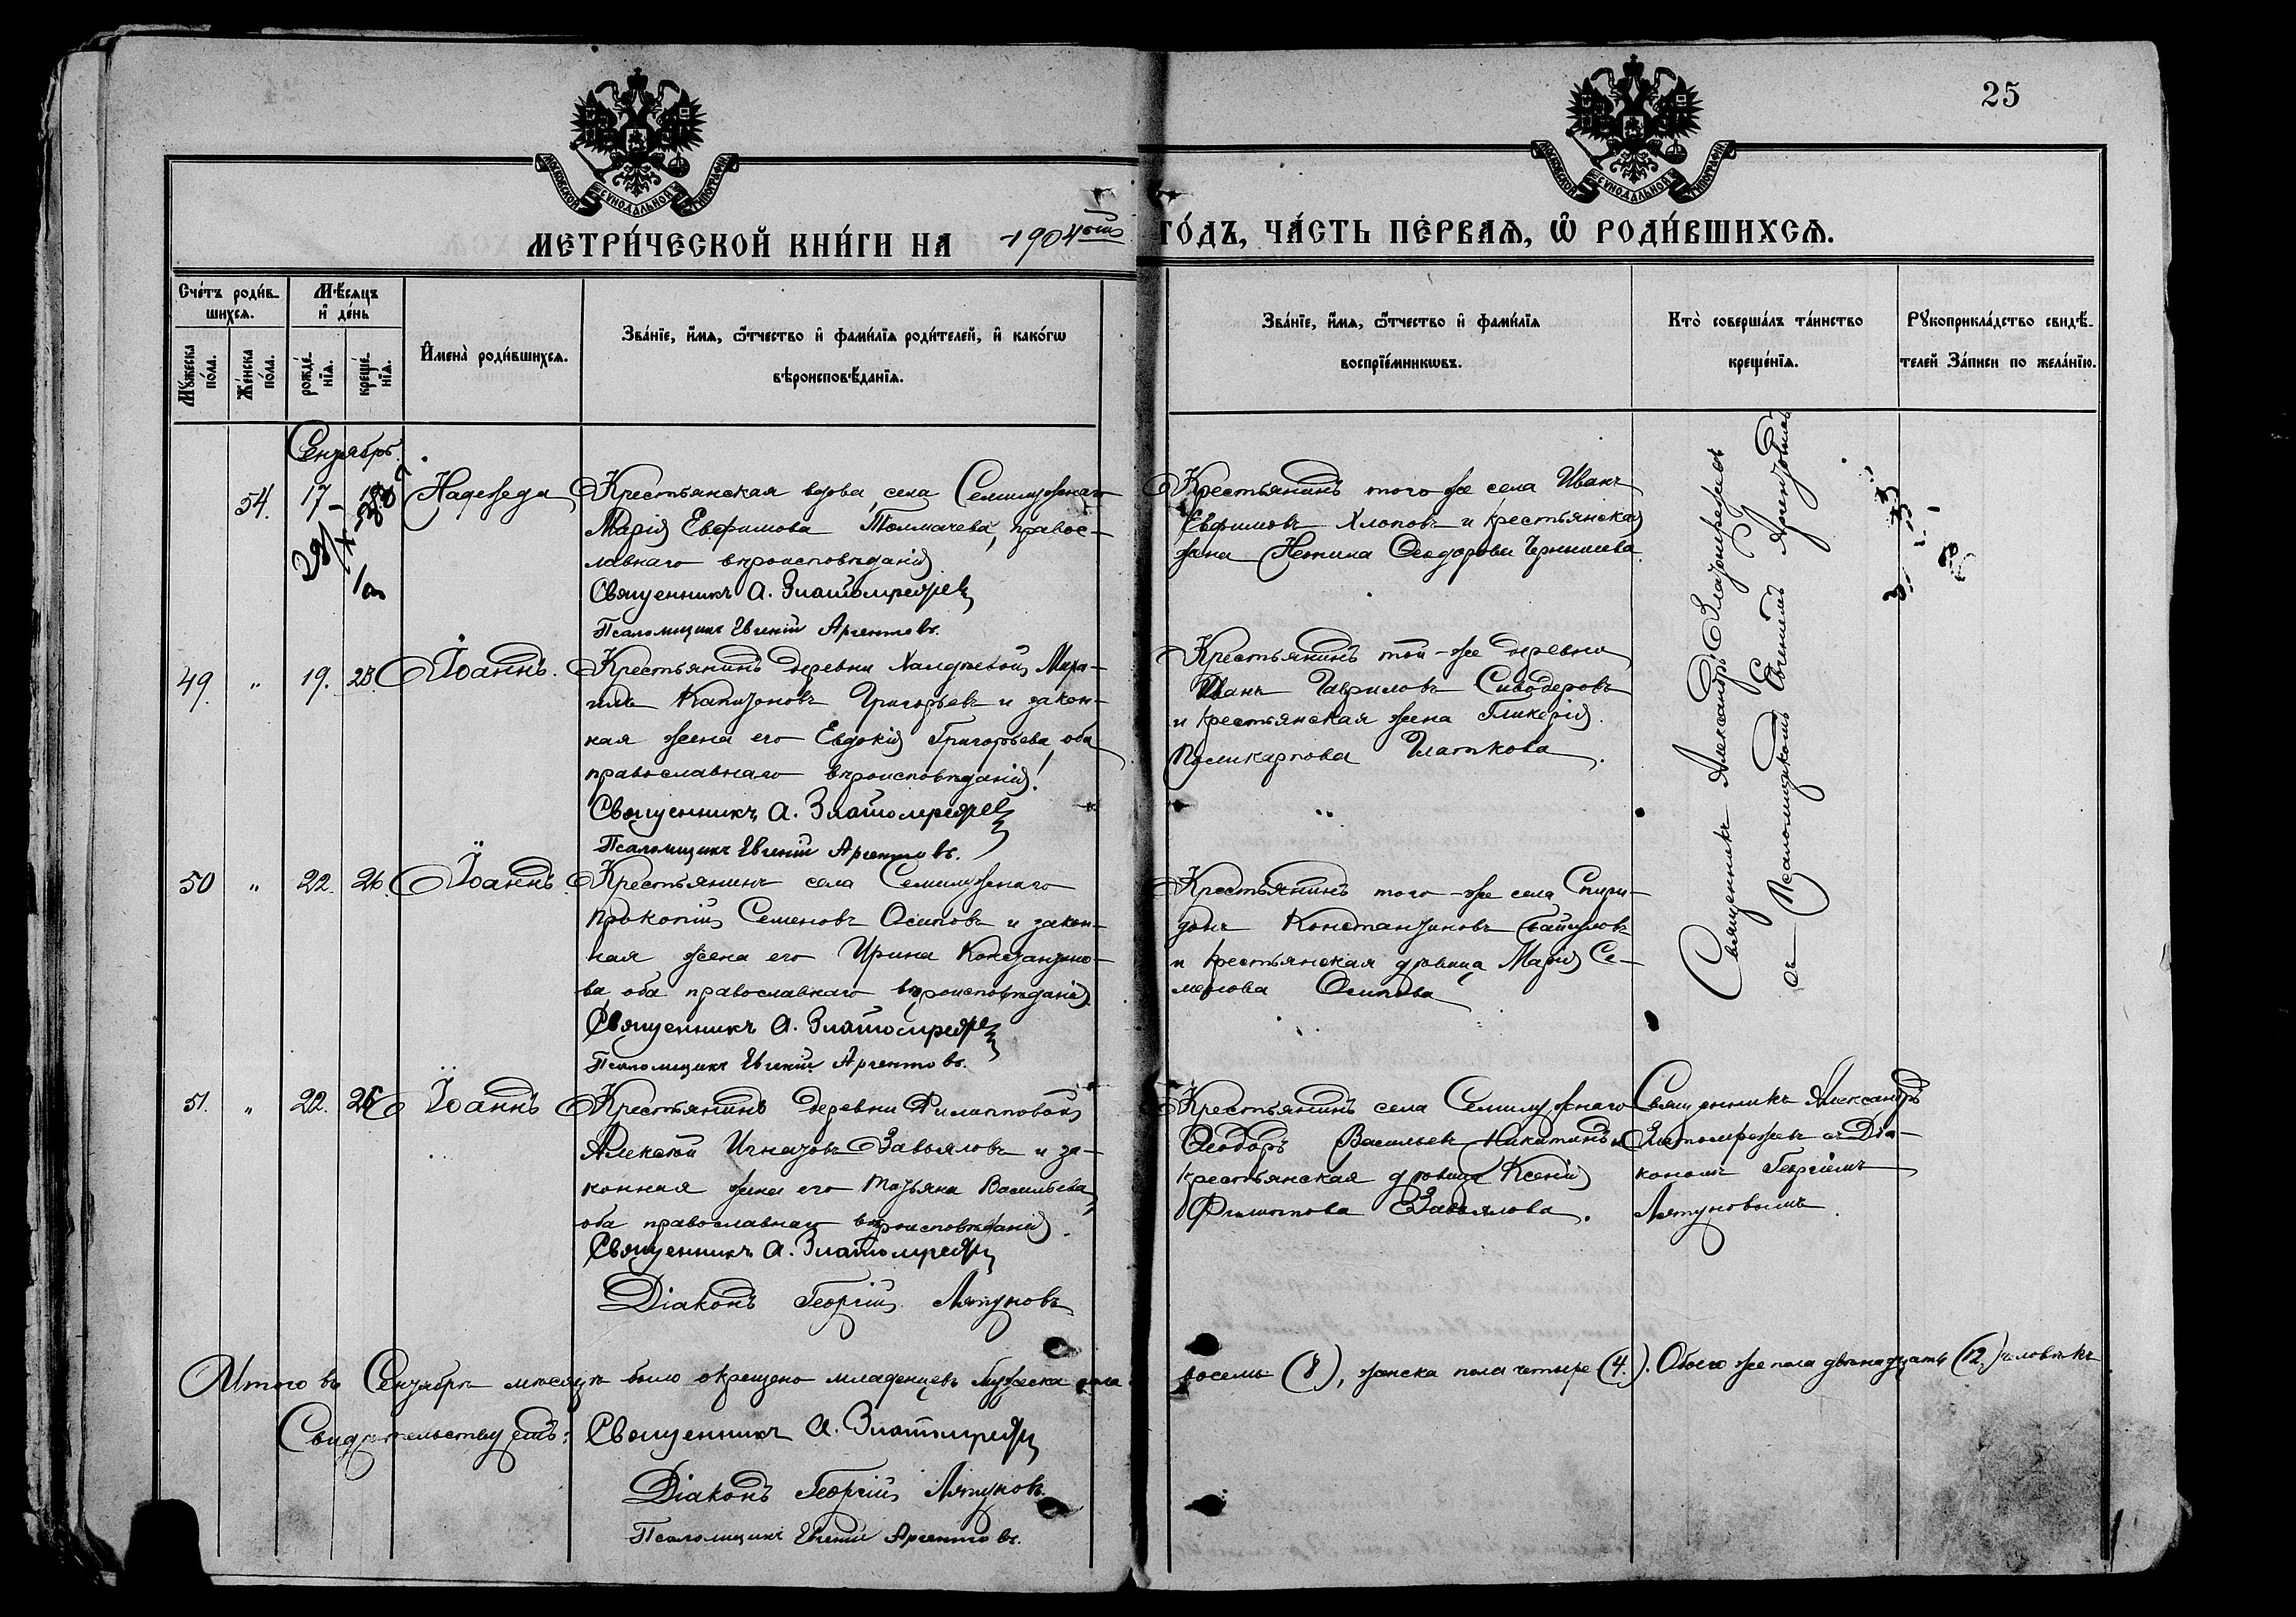 25
МОСКОВСКОЙ СѴНОДАЛЬНОЙ ТИПОГРАФІИ
МОСКОВСКОЙ СѴНОДАЛЬНОЙ ТИПОГРАФІИ
МЕТРИ́ЧЕСКОЙ КНИ́ГИ НА 1904ый ГО́ДЪ, ЧА́СТЬ ПЕ́РВАѦ, Ѡ҆ РОДИ́ВШИХСѦ.
Сче́тъ роди́в-
шихсѧ.
Мѹ́жеска по́ла.
Же́нска по́ла.
Мѣ́сѧцъ
и҆ де́нь
рожде́-
нїѧ.
креще́-
нїѧ.
И҆мена̀ роди́вшихсѧ.
Зва́нїе, и҆́мѧ, ѻ҆́тчество и҆ фами́лїѧ роди́телей, и҆ како́гѡ
вѣроисповѣ́данїѧ.
Зва́нїе, и҆́мѧ, ѻ҆́тчество и҆ фами́лїѧ
воспрїе́мникѡвъ.
Кто̀ соверша́лъ та́инство
креще́нїѧ.
Рѹкоприкла́дство свидѣ́-
телей За́писи по жела́нїю.
Сентябрь.
54. 17 Надежда
Крестьянская вдова села Семилужнаго
Марія Евфимова Толмачева, правос-
лавнаго вѣроисповѣданія
Священникъ А. Златомрежев
Псаломщикъ Евгеній Аргентовъ.
Крестьянинъ того же села Иванъ
Евфимовъ Хлоповъ и крестьянская
жена Ѳеодорова Чернышева
Священникъ Александръ Златомрежевъ
съ Псаломщикомъ Евгеніемъ Аргентовымъ
49. " 19. 23. Іоаннъ.
Крестьянинъ деревни Халдѣевой, Миха-
илъ Капитоновъ Григорьевъ и закон-
ная жена его Евдокія Григорьева, оба
православнаго вѣроисповѣданія.
Священникъ А. Златомрежев
Псаломщикъ Евгеній Аргентовъ.
Крестьянинъ той-же деревни
Иванъ Гавриловъ Сиводеровъ
и крестьянская жена Гликерія
Поликарпова Глаткова.
50 " 22. 26. Іоаннъ.
Крестьянинъ села Семилужнаго
Прокопій Семеновъ Осиповъ и закон-
ная жена его Ирина Константино-
ва, оба православнаго вѣроисповѣданія.
Священникъ А. Златомрежев
Псаломщикъ Евгеній Аргентовъ.
Крестьянинъ того-же села Спири-
донъ Константиновъ
и крестьянская дѣвица Марія Се-
менова Осипова
51. " 22. 26 Іоаннъ
Крестьянинъ деревни Филипповой
Алексѣй Игнатовъ Завьяловъ и за-
конная жена его Татьяна Васильева,
оба православнаго вѣроисповѣданія.
Священникъ А. Златомрежев
Діаконъ Георгій Ляпуновъ
Крестьянинъ села Семилужнаго
Ѳеодоръ Васильевъ Никитинъ и
крестьянская дѣвица Ксенія
Филиппова Завьялова.
Священникъ Александръ
Златомрежевъ съ Діа-
кономъ Георгіемъ
Ляпуновымъ.
Итого въ Сентябрѣ мѣсяцѣ было окрещено младенцевъ мужеска пола восемь (8), женска пола четыре (4.). Обоего же пола двѣнадцать (12.) человѣкъ
Свидѣтельствуетъ: Священникъ А. Златомрежев
Діаконъ Георгій Ляпуновъ.
Псаломщикъ Евгеній Аргентовъ.